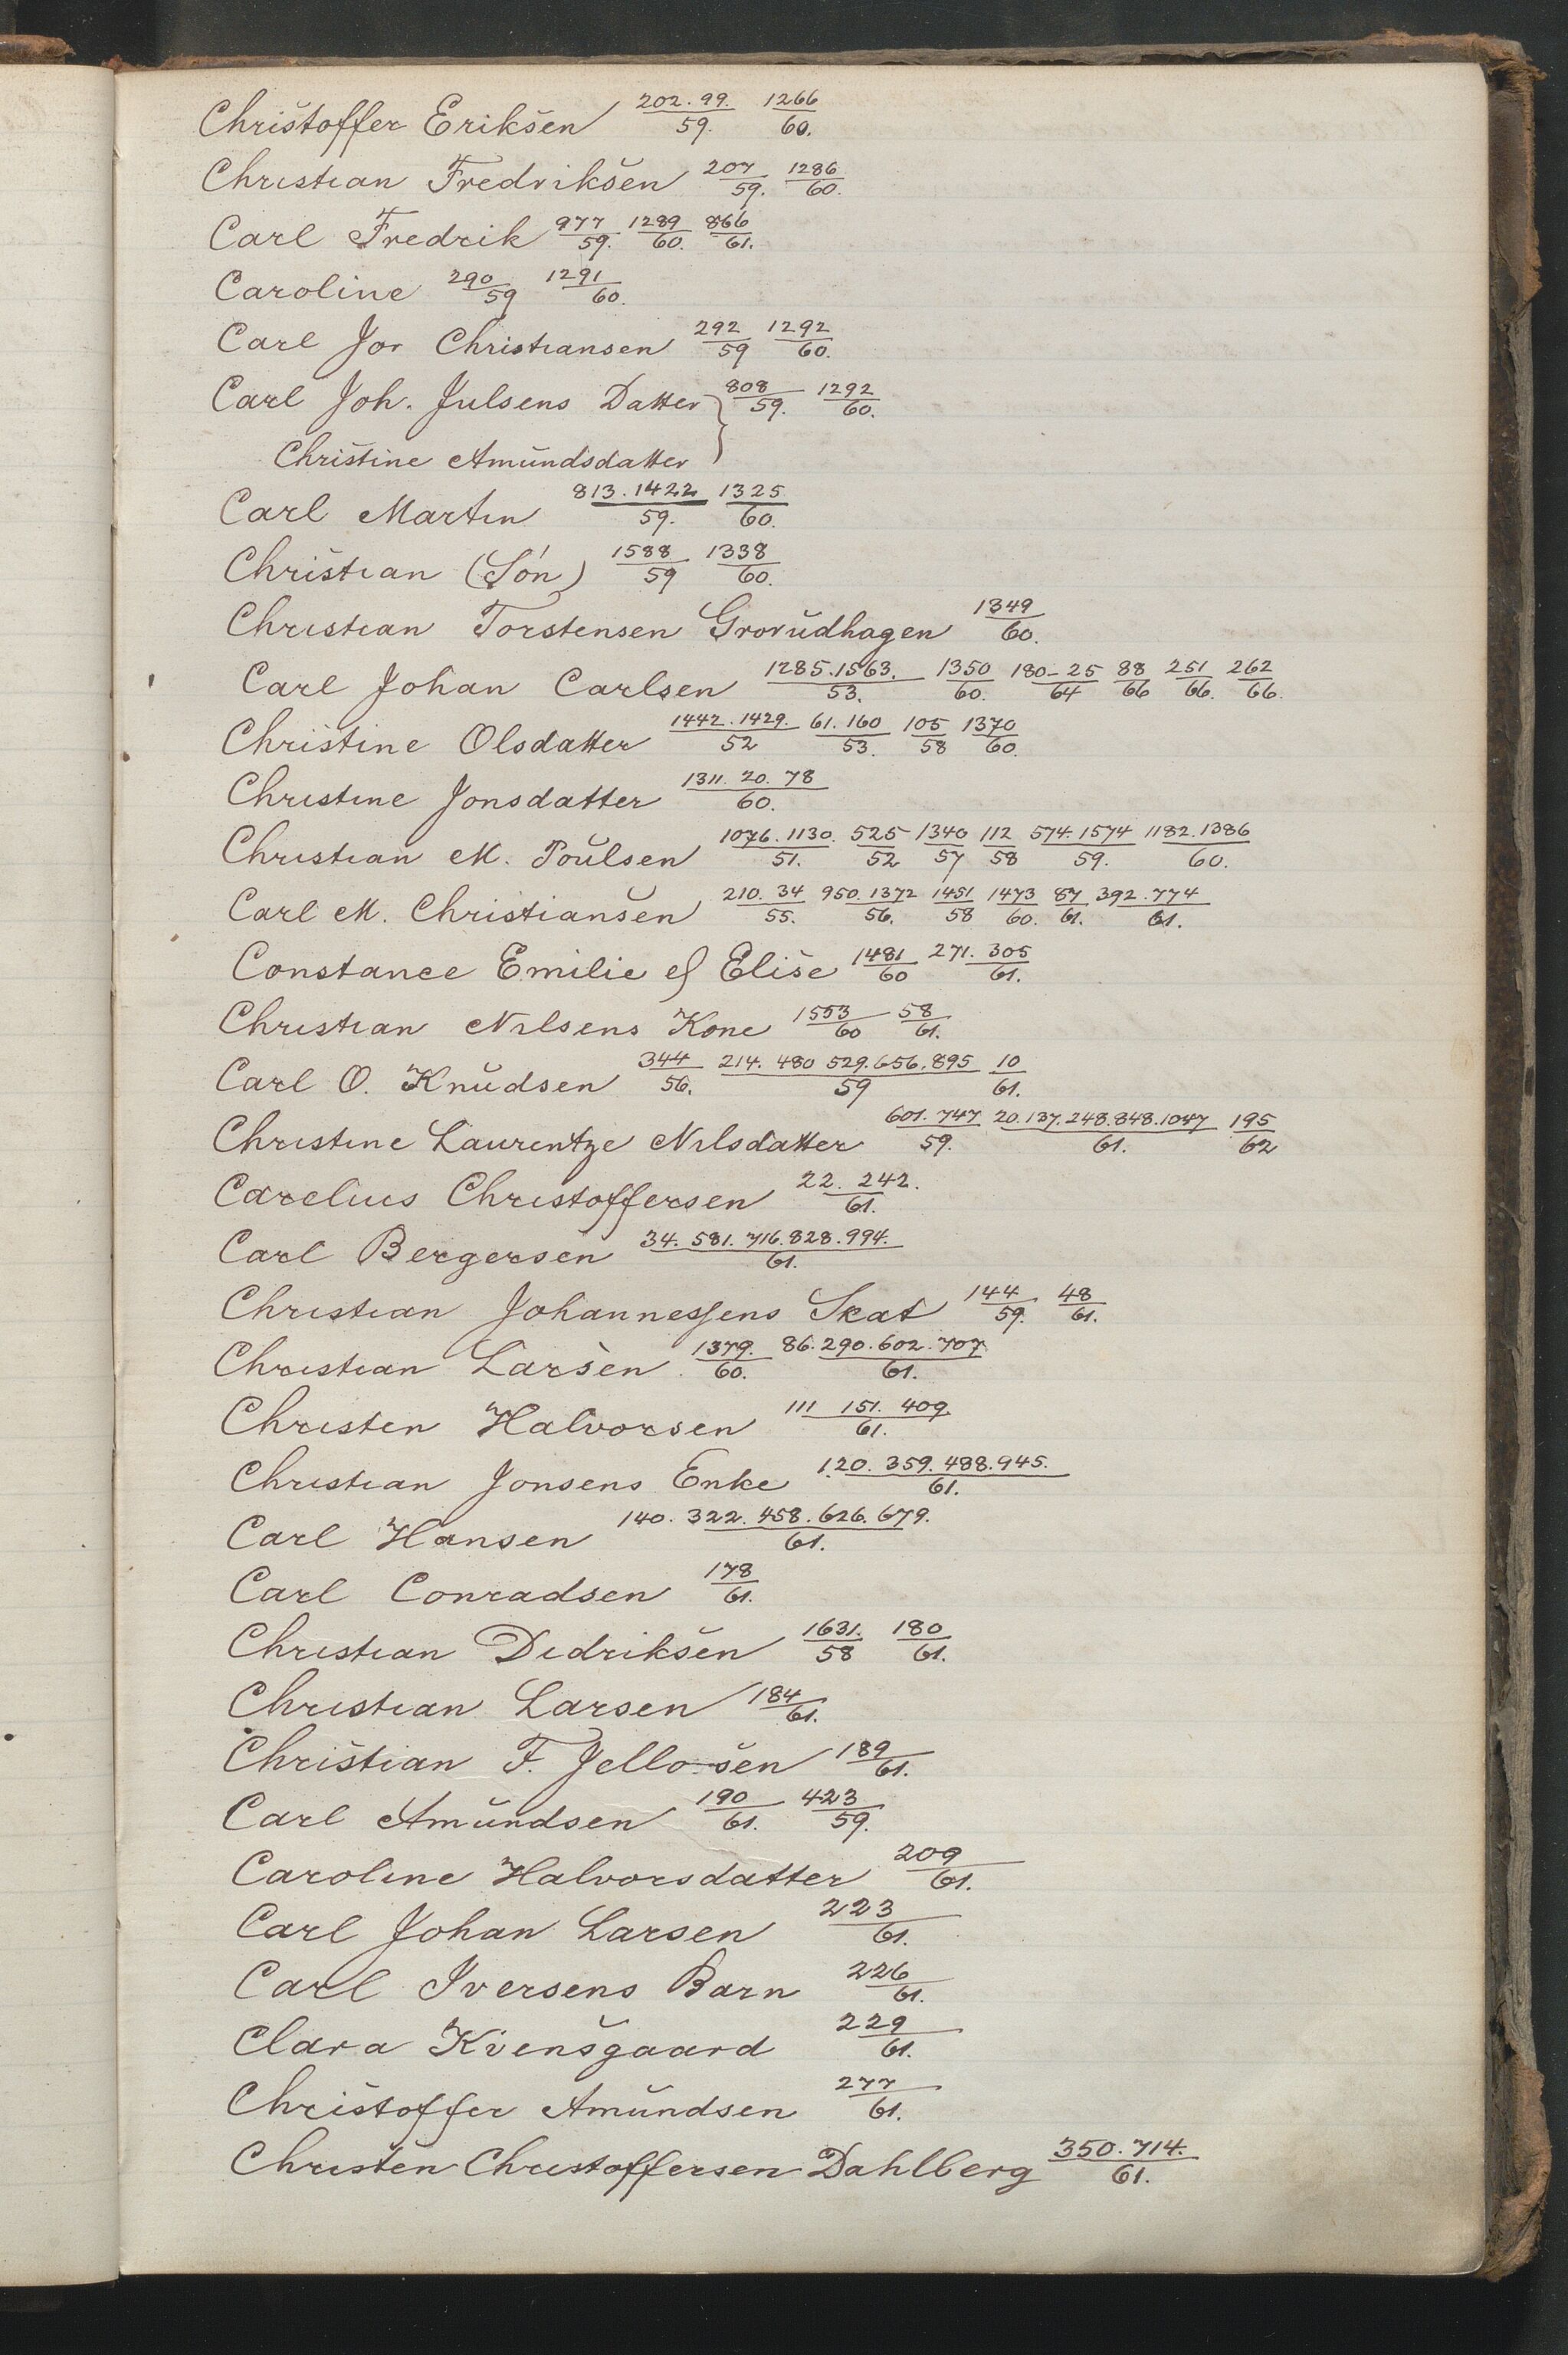 Christoffer Eriksen 202.99./59. 1266/60.
Christian Fredriksen 207/59. 1286/60.
Carl Fredrik 977/59. 1289/60. 866/61.
Caroline 290/59 1291/60.
Carl Jor Christiansen 292/59 1292/60.
Carl Joh. Julsens Datter } 808/59. 1292/60.
Christine Amundsdatter
Carl Martin 813.1422/59. 1325/60.
Christian (Són) 1588/59 1338/60.
Christian Torstensen Grorudhagen 1349/60.
Carl Johan Carlsen 1285.1563./53. 1350/60. 180-25/64 88/66 251/66. 262/66.
Christine Olsdatter 1442.1429./52 61.160/53. 105/58 1370/60.
Christine Jonsdatter 1311.20.78/60.
Christian M. Poulsen 1076.1130./51. 525/52 1340/57 112/58 574.1574/59. 1182.1386/60.
Carl M. Christiansen 210.34/55. 950.1372/56. 1451/58 1473/60. 87/61. 392.774/61.
Constance Emilie & Elise 1481/60 271.305/61.
Christian Nilsens Kone 1553/60 58/61.
Carl O. Knudsen 344/56. 214.480 529.656.895/59 10/61.
Christine Laurentze Nilsdatter 601.747/59. 20.137.248.848.1047/61. 195/62
Carelius Christoffersen 22.242./61.
Carl Bergersen 34.581.716.828.994./61.
Christian Johannessens Skat 144/59. 48/61.
Christian Larsen 1379./60. 86.290.602.707./61.
Christen Halvorsen 111 151.409/61.
Christian Jonsens Enke 120.359.488.945./61.
Carl Hansen 140.322.458.626.679./61.
Carl Conradsen 178/61.
Christian Didriksen 1631./58 180/61.
Christian Larsen 184/61.
Christian F. Jellosen 189/61.
Carl Amundsen 190/61. 423/59.
Caroline Halvorsdatter 209/61.
Carl Johan Larsen 223/61.
Carl Iversens Barn 226/61.
Clara Kvensgaard 229/61.
Christoffer Amundsen 277/61.
Christen Christoffersen Dahlberg 350.714./61.